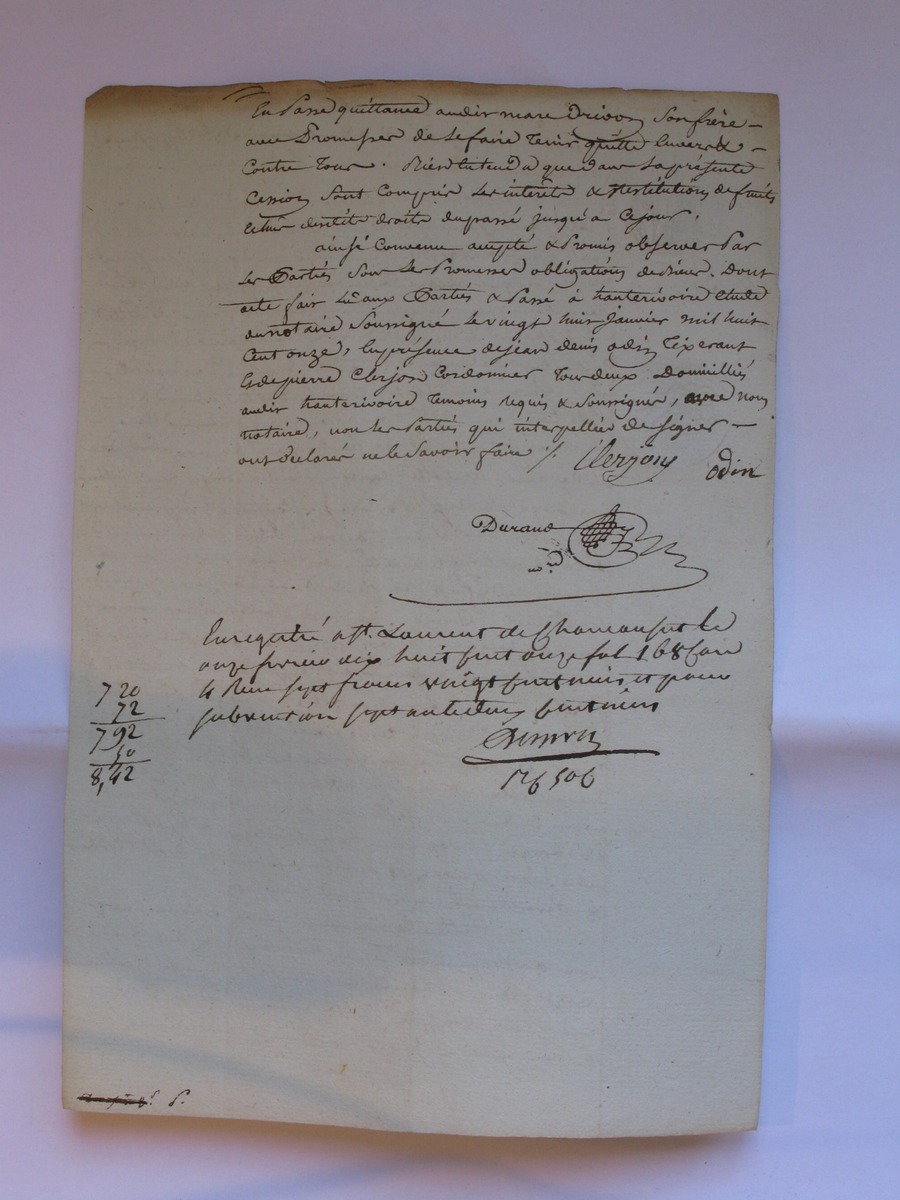 En passe quittance audit marc Drivon son frère
avec Promesses de le faire Tenir quitte Envers &
Contre Tous. Bien Entendu que dans la présente
Cession sont Compris les interets & Restitutions de fruits
desdits droits du passé jusqu'a Ce jour.
ainsi Convenu accepté & Promis observer Par
Les Parties sous Les Promesses obligations de Dieux. Dont
acte fait Lu aux Parties & Passé à hauterivoire Etude
du notaire soussigné Le vingt huit janvier mil huit
Cent onze, En présence de jean denis odin Tixerant
& de pierre Clerjon Cordonnier Tous deux Domiciliés
audit hauterivoire Temoins requis & soussignes, avec nous
notaire, non les Parties qui interpellées de signer
ont Declarés ne le savoir faire ./. Clerjon odin
Durand
Enregistré à St. Laurent de Chamousset le
onze fevrier dix huit cent onze fol 168 Case
4 Reçu sept francs vingt centimes et pour
subvention septante deux centimes
7 20
72
7 92
50
8,42